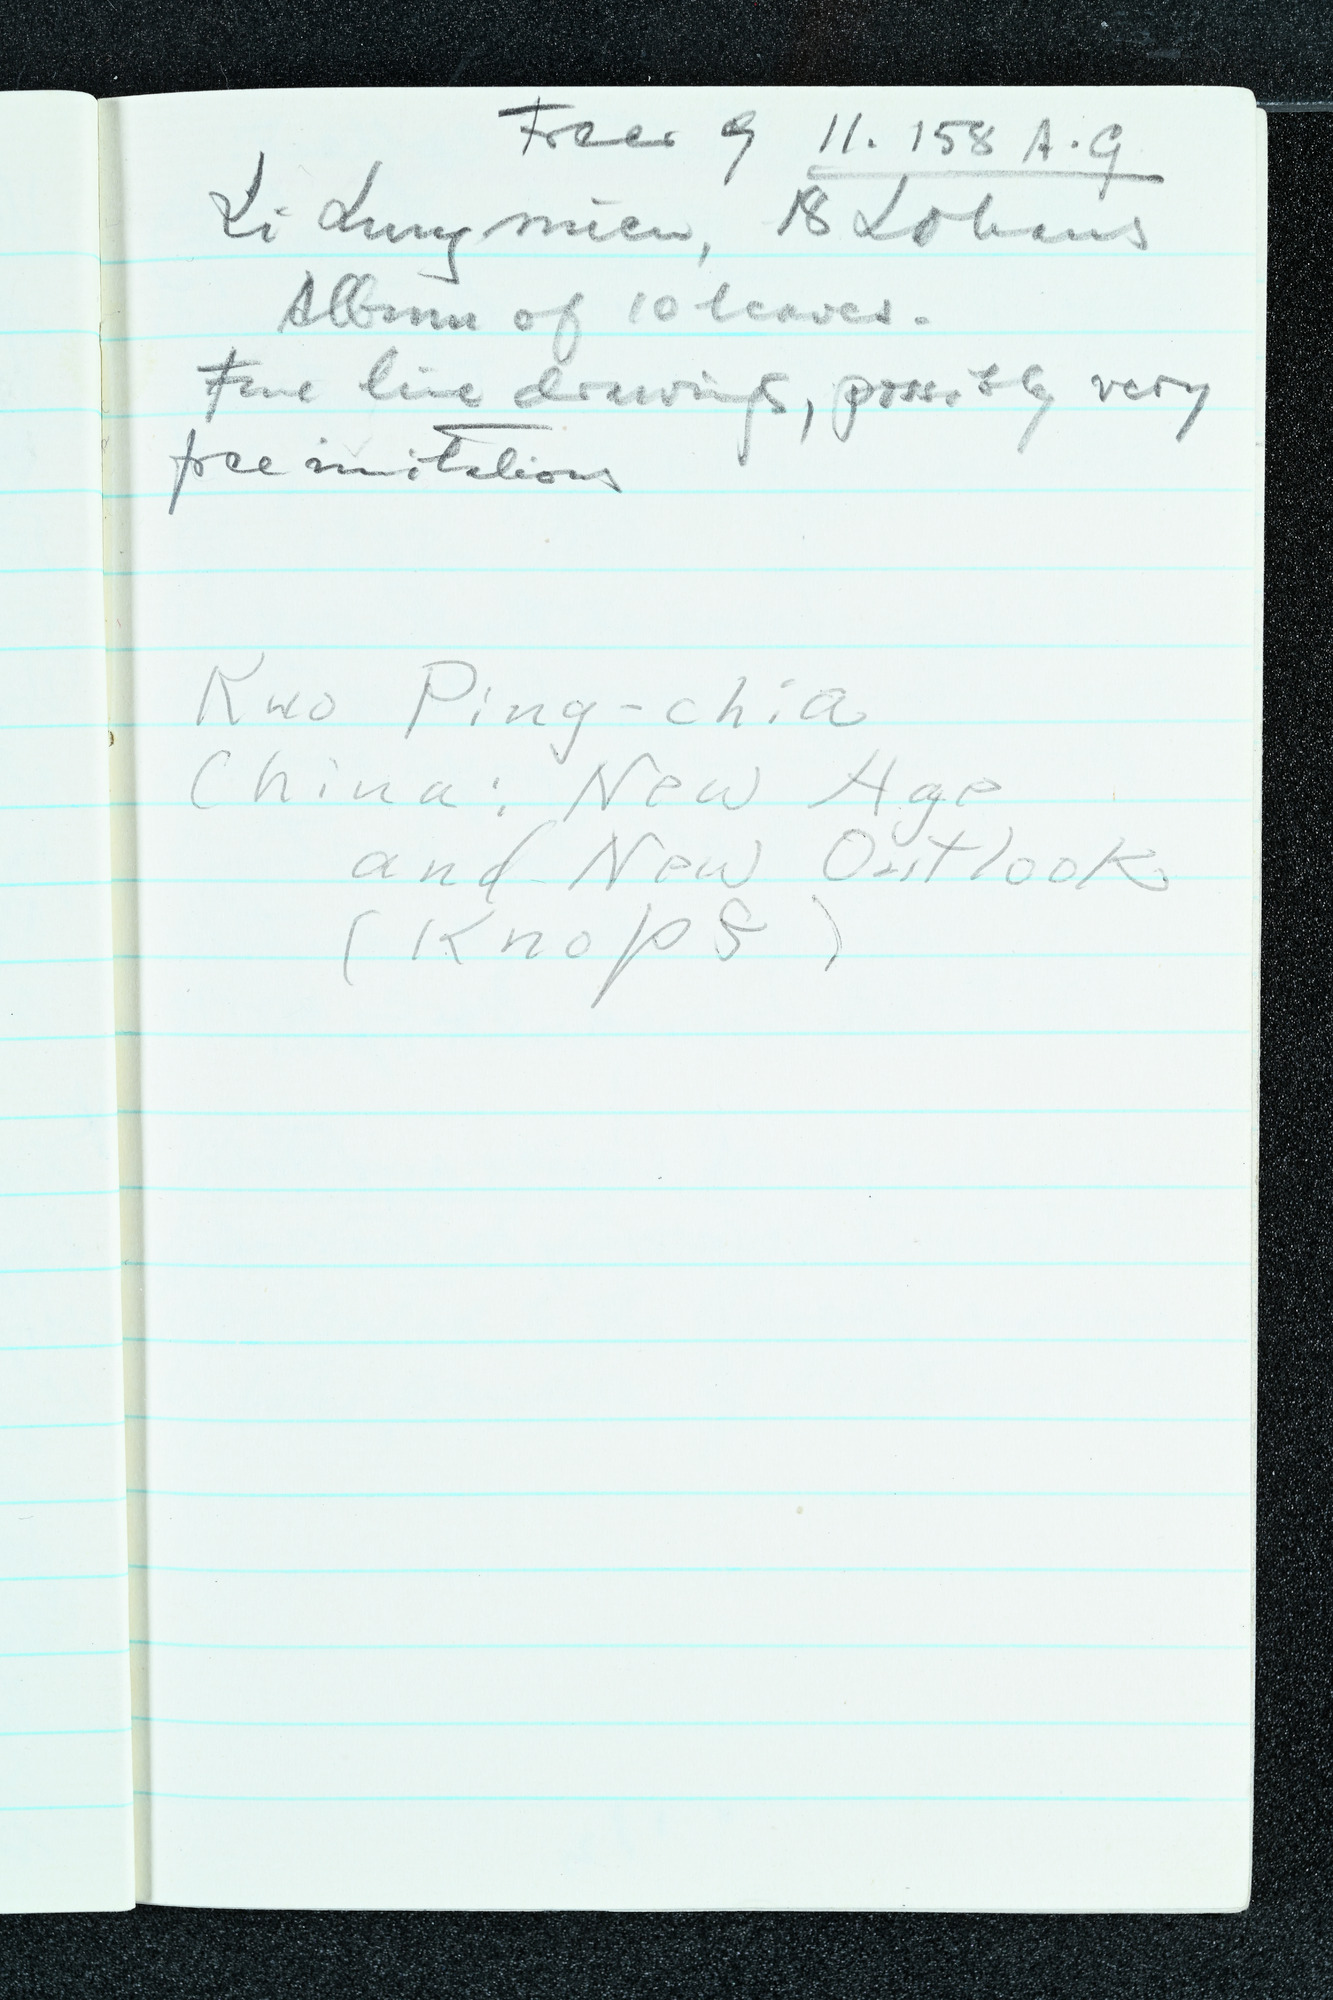 Freer G 11. 158 A-G
Li Lung mien, 18 Lohans
Album of 10 leaves.
Fine line drawings, possibly very
free imitations
Kuo Ping-chia
China: New Age
and New Outlook
(Knopf)